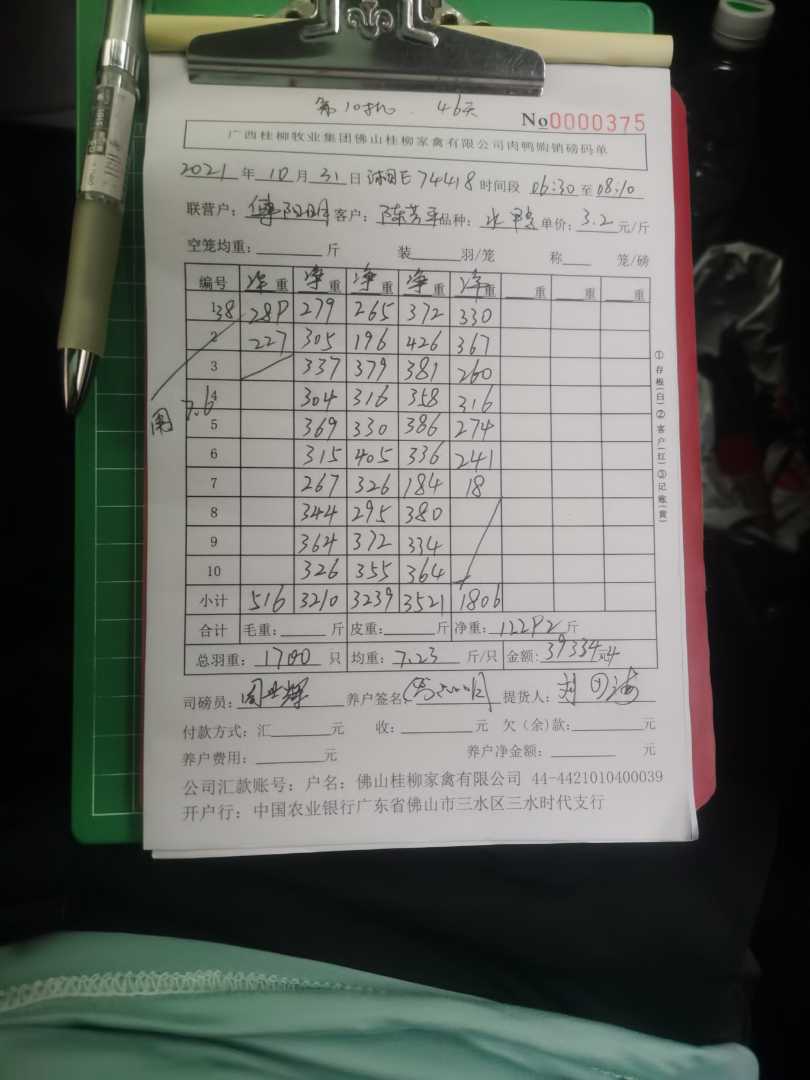 第10批 46天
No 0000375
广西桂柳牧业集团佛山桂柳家禽有限公司肉鸭购销磅码单
2021 年 10 月 31 日 湘E 74418 时间段 06:30 至 08:10
联营户: 傅阳明 客户: 陈芳平 品种: 水鸭 单价: 3.2 元/斤
空笼均重: 斤 装 羽/笼 称 笼/磅
编号 净重 净重 净重 净重 净重 重 重 重
1 38 289 279 265 372 330
2 227 305 196 426 367
3 337 379 381 260
4 304 316 358 316
5 369 330 386 274
6 315 405 336 241
7 267 326 184 18
8 344 295 380
9 364 372 334
10 326 355 364
7.6
小计 516 3210 3239 3521 1806
合计 毛重: 斤 皮重: 斤 净重: 12292 斤
总羽重: 1700 只 均重: 7.23 斤/只 金额: 39334元
司磅员: 养户签名: 提货人:
付款方式: 汇 元 收: 元 欠(余)款: 元
养户费用: 元 养户净金额: 元
公司汇款账号: 户名: 佛山桂柳家禽有限公司 44-4421010400039
开户行: 中国农业银行广东省佛山市三水区三水时代支行
①存根(白)②客户(红)③记账(黄)